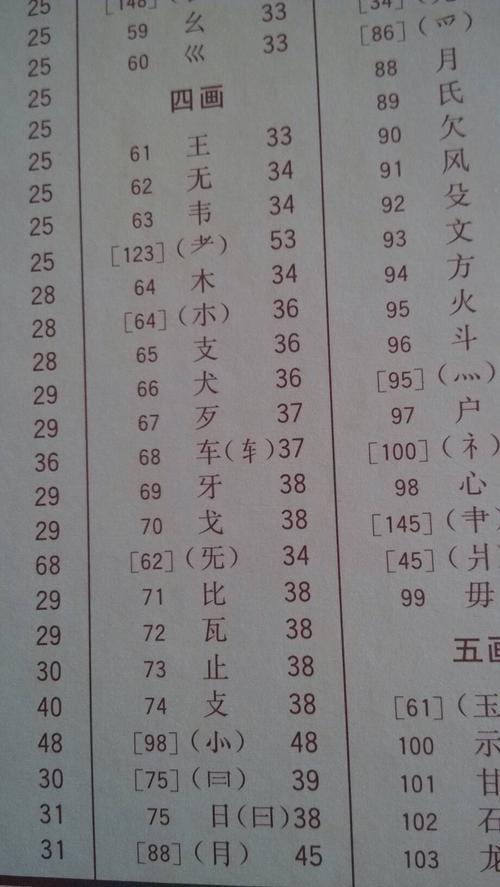 25
25
25
25
25
25
25
25
25
28
28
28
29
29
36
29
29
68
29
29
30
40
48
30
31
31
[148]
59 幺 33
60 巛 33
四画
61 王 33
62 无 34
63 韦 34
[123] (耂) 53
64 木 34
[64] (朩) 36
65 支 36
66 犬 36
67 歹 37
68 车(车) 37
69 牙 38
70 戈 38
[62] (旡) 34
71 比 38
72 瓦 38
73 止 38
74 攴 38
[98] (⺗) 48
[75] (曰) 39
75 日(曰) 38
[88] (月) 45
[34]
[86] (爫)
88 月
89 氏
90 欠
91 风
92 殳
93 文
94 方
95 火
96 斗
[95] (灬)
97 户
[100] (礻)
98 心
[145] (肀)
[45] (爿)
99 毋
五画
[61] (玉
100 示
101 甘
102 石
103 龙